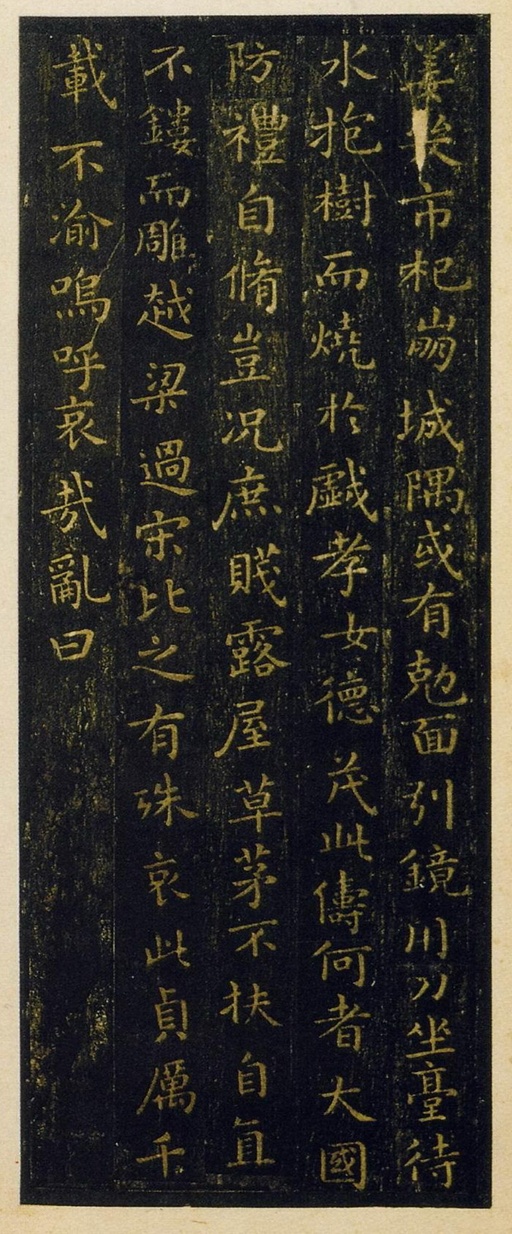 姜哭市杞崩城隅或有尅面引鏡川刀坐臺待
水抱樹而燒於戲孝女德茂此儔何者大國
防禮自脩豈况庶賤露屋草茅不扶自直
不鏤而雕越梁過宋比之有殊哀此貞厲千
載不渝嗚呼哀哉亂曰